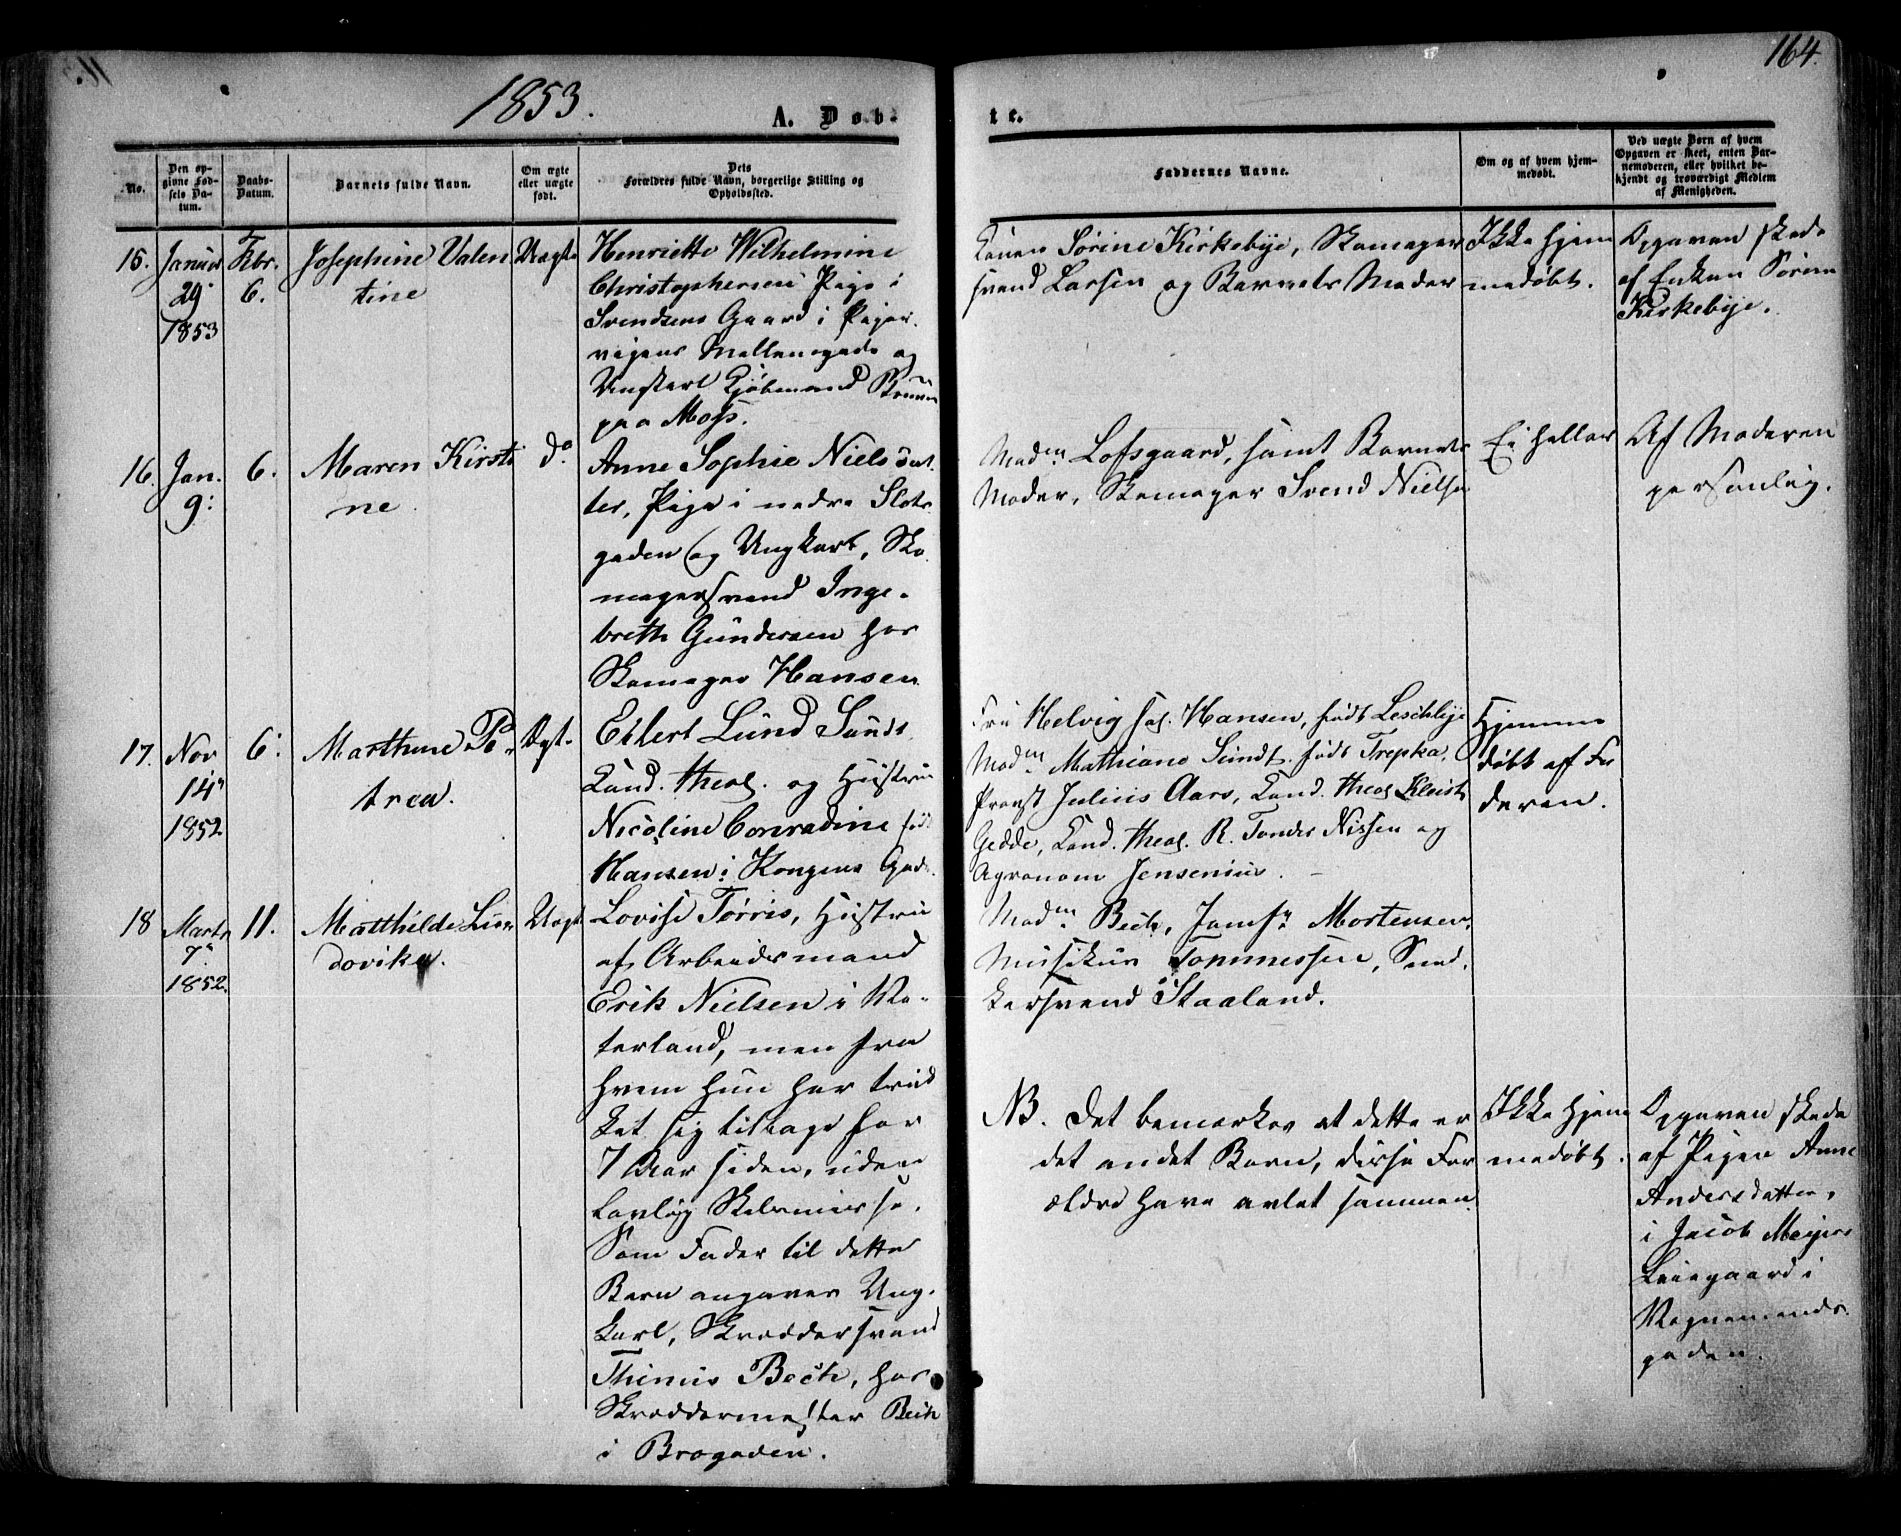 1853.
164.
A. Døb-
te.
No.
Den op-
givne Fød-
sels Da-
tum.
Daabs-
Datum.
Barnets fulde Navn.
Om ægte
eller uægte
født.
Dets
Forældres fulde Navn, borgerlige Stilling og
Opholdssted.
Faddernes Navne.
Om og af hvem hjem-
medøbt.
Ved uægte Børn af hvem
Opgaven er skeet, enten Bar-
nemoderen, eller hvilket be-
kjendt og troværdigt Medlem
af Menigheden.
15.
Januar
29
1853
Fbr.
6.
Josephine Valen
tine
Uægte
Henriette Wilhelmine
Christophersen Pige i
Svendsens Gaard i Piger-
vigens Mellemgade og
Ungkarl Kjøbmand
paa Moss.
Konen Sørine Kirkebye, Skomager
svend Larsen og Barnets Moder
Ikke hjem
medøbt.
Opgaven skede
af Enken Sørine
Kirkebye.
16.
Jan.
9.
6.
Maren Kirsti
ne
do
Anne Sophie Niels dat
ter, Pige i nedre Slots
gaden og Ungkarl, Sko
magersvend Inge-
breth Gundersen hos
Skomager Hansen
Madm. Lofsgaard, samt Barnets
Moder, Skomager Svend Nielsen
Ei heller
Af Moderen
personlig.
17.
Nov
14
1852
6.
Marthine Pe-
trea.
Ægt.
Eilert Lund Sundt
Cand. theol. og Hustru
Nicoline Conradine født
Hansen i Kongens Gade.
Fru Helvig sal. Hansen, født
Madm. Mathiane Sundt, født Trepka,
Provst Julius Aars, Cand. theol
Gedde, Cand. theol. R. Tønder Nissen og
Agronom Jensenius.
Hjemme
døbt af Fa
deren.
18
Marts
7
1852.
11.
Matthilde Lu-
dovika.
Uægt
Lovise Tørris, Hustru
af Arbeidsmand
Erik Nielsen i Va-
terland, men fra
hvem hun har truk
ket sig tilbage for
7 Aar siden, uden
lovlig Skilsmisse.
Som Fader til dette
Barn angives Ung-
karl, Skræddersvend
Thinius Bech, hos
Skræddermester Bech
i Brogaden.
Madm. Bech, Jomfr Mortensen,
Musikus Tønnessen, Sned-
kersvend Staaland.
NB. Det bemærkes at dette er
det andet Barn, disse For
ældre have avlet sammen.
Ikke hjem
medøbt.
Opgaven skede
af Pigen Anne
Andersdatter,
i Jacob Meyers
Leiegaard i
Vognmands-
gaden.